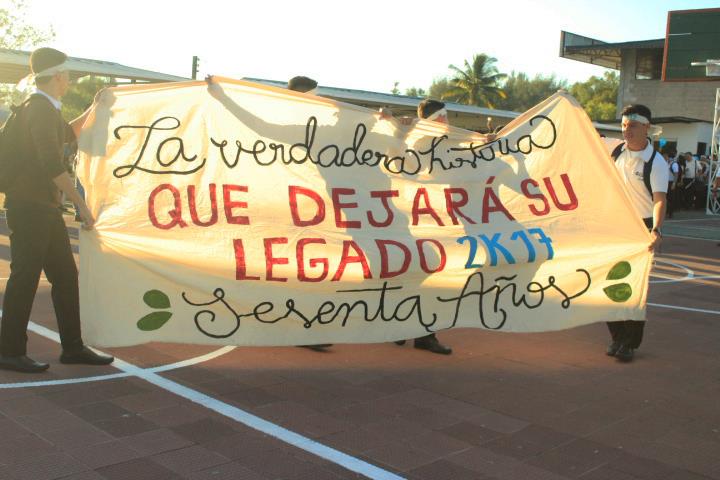 La verdadera historia
QUE DEJARÁ SU
LEGADO 2K17
Sesenta Años